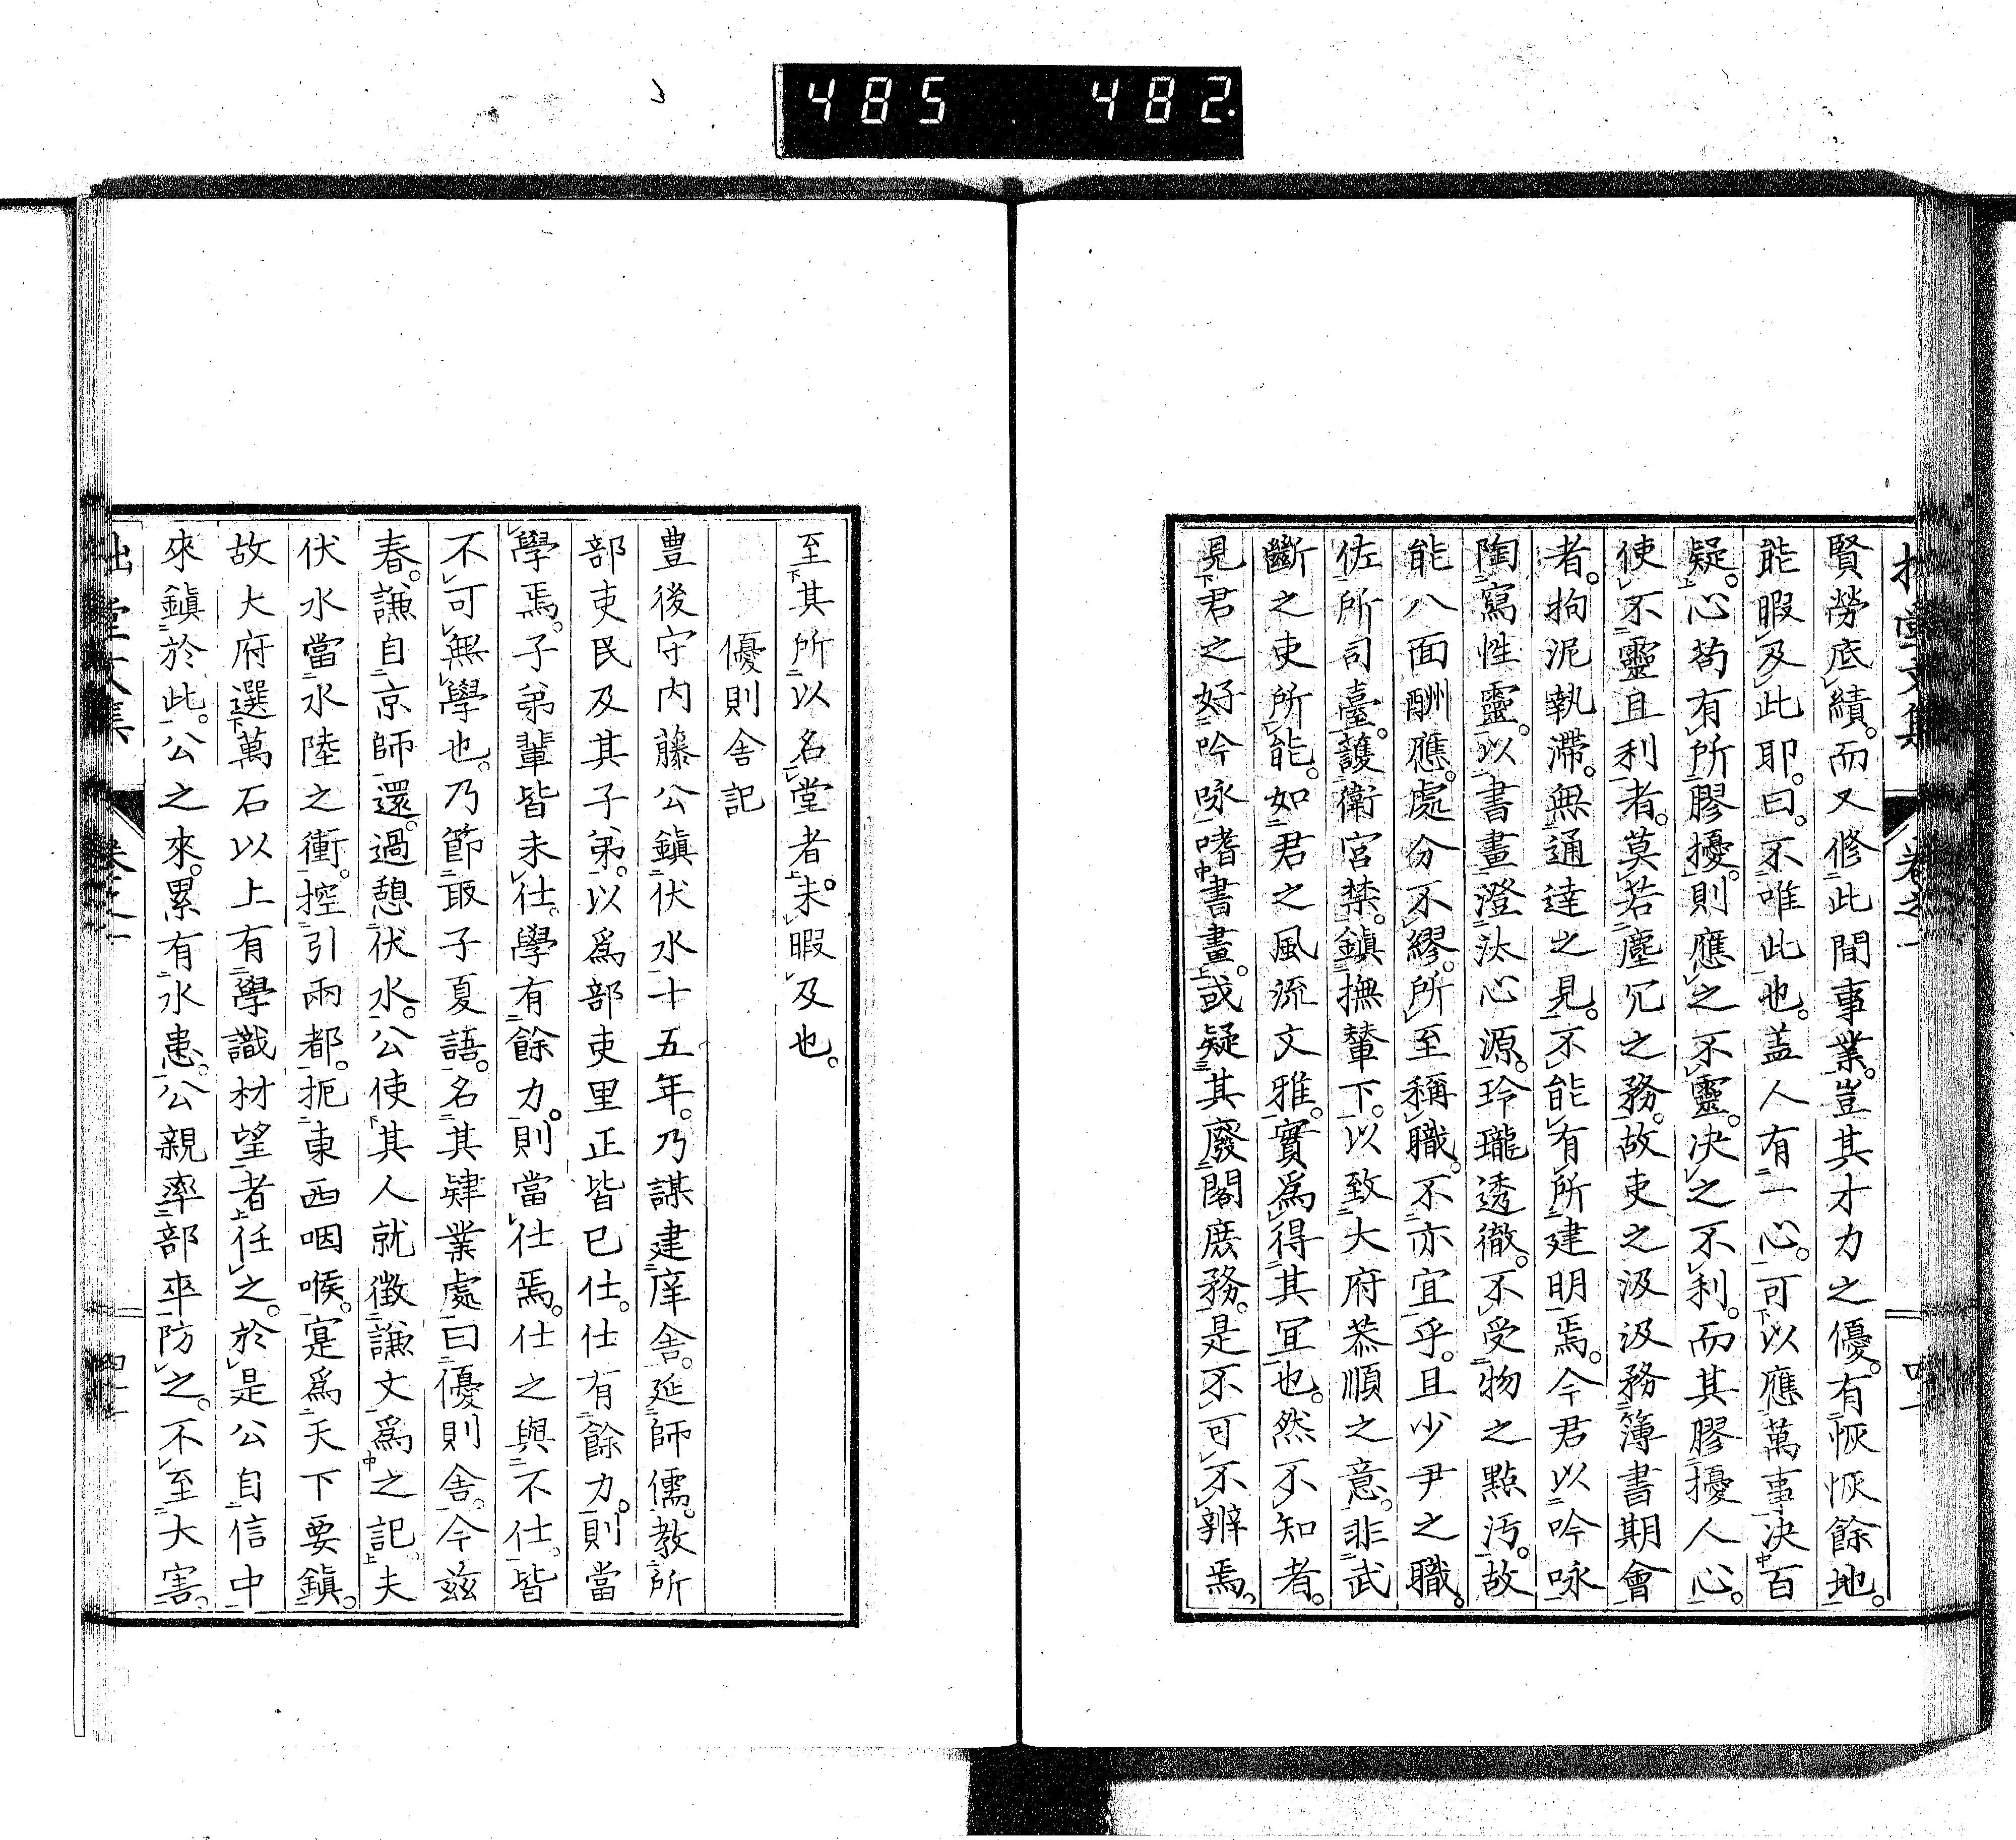 485 482.
賢勞底績。而又修此間事業。豈其才力之優。有恢恢餘地。
能暇及此耶。曰。不唯此也。盖人有一心。可以應萬事决百
疑。心苟有所膠擾。則應之不靈。决之不利。而其膠擾人心。
使不靈且利者。莫若塵冗之務。故吏之汲汲務簿書期會
者。拘泥執滯。無通達之見。不能有所建明焉。今君以吟咏
陶寫性靈。以書畫澄汰心源。玲瓏透徹。不受物之點汚。故
能八面酬應。處分不繆。所至稱職。不亦宜乎。且少尹之職。
佐所司臺。護衛宮禁。鎮撫輦下。以致大府恭順之意。非武
斷之吏所能。如君之風流文雅。實爲得其宜也。然不知者。
見君之好吟咏嗜書畫。或疑其廢閣庶務。是不可不辨焉。
至其所以名堂者。未暇及也。
優則舍記
豊後守内藤公鎭伏水十五年。乃謀建庠舍。延師儒。教所
部吏民及其子弟。以爲部吏里正皆已仕。仕有餘力。則當
學焉。子弟輩皆未仕。學有餘力。則當仕焉。仕之與不仕。皆
不可無學也。乃節取子夏語。名其肄業處曰優則舍。今茲
春。謙自京師還。過憩伏水。公使其人就徴謙文爲之記。夫
伏水當水陸之衝。控引兩都。扼東西咽喉。寔爲天下要鎭。
故大府選萬石以上有學識材望者任之。於是公自信中
來鎭於此。公之來。累有水患。公親率部卒防之。不至大害。
堂文集 卷之一